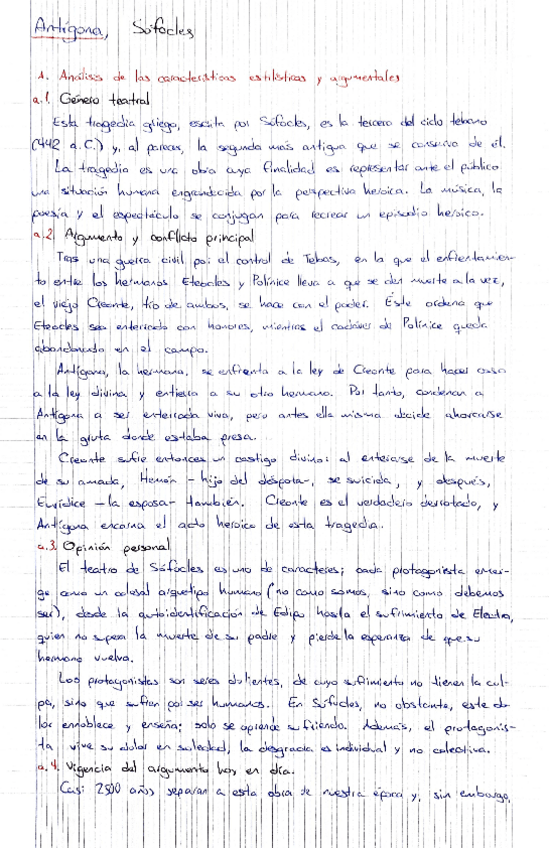 Antígona, Sófocles
1. Análisis de las características estilísticas y argumentales
a.1. Género teatral
Esta tragedia griega, escrita por Sófocles, es la tercera del ciclo tebano
(442 a.C.) y, al parecer, la segunda más antigua que se conserva de él.
La tragedia es una obra cuya finalidad es representar ante el público
una situación humana engrandecida por la perspectiva heroica. La música, la
poesía y el espectáculo se conjugan para recrear un episodio heroico.
a.2. Argumento y conflicto principal
Tras una guerra civil por el control de Tebas, en la que el enfrentamien-
to entre los hermanos Eteocles y Polinice lleva a que se den muerte a la vez,
el viejo Creonte, tío de ambos, se hace con el poder. Este ordena que
Eteocles sea enterrado con honores, mientras el cadáver de Polinice queda
abandonado en el campo.
Antígona, la hermana, se enfrenta a la ley de Creonte para hacer caso
a la ley divina y entierra a su otro hermano. Por tanto, condenan a
Antígona a ser enterrada viva, pero antes ella misma decide ahorcarse
en la gruta donde estaba presa.
Creonte sufre entonces un castigo divino: al enterarse de la muerte
de su amada, Hemón -hijo del déspota-, se suicida, y después,
Eurídice -la esposa- también. Creonte es el verdadero derrotado, y
Antígona encarna el acto heroico de esta tragedia.
a.3. Opinión personal
El teatro de Sófocles es uno de caracteres; cada protagonista emer-
ge como un colosal arquetipo humano ("no como somos, sino como debemos
ser), desde la autoidentificación de Edipo hasta el sufrimiento de Electra,
quien no supera la muerte de su padre y pierde la esperanza de que su
hermano vuelva.
Los protagonistas son seres dolientes, de cuyo sufrimiento no tienen la cul-
pa, sino que sufren por ser humanos. En Sófocles, no obstante, este do-
lor ennoblece y enseña: solo se aprende sufriendo. Además, el protagonis-
ta vive su dolor en soledad, la desgracia es individual y no colectiva.
a.4. Vigencia del argumento hoy en día.
Casi 2500 años separan a esta obra de nuestra época y, sin embargo,